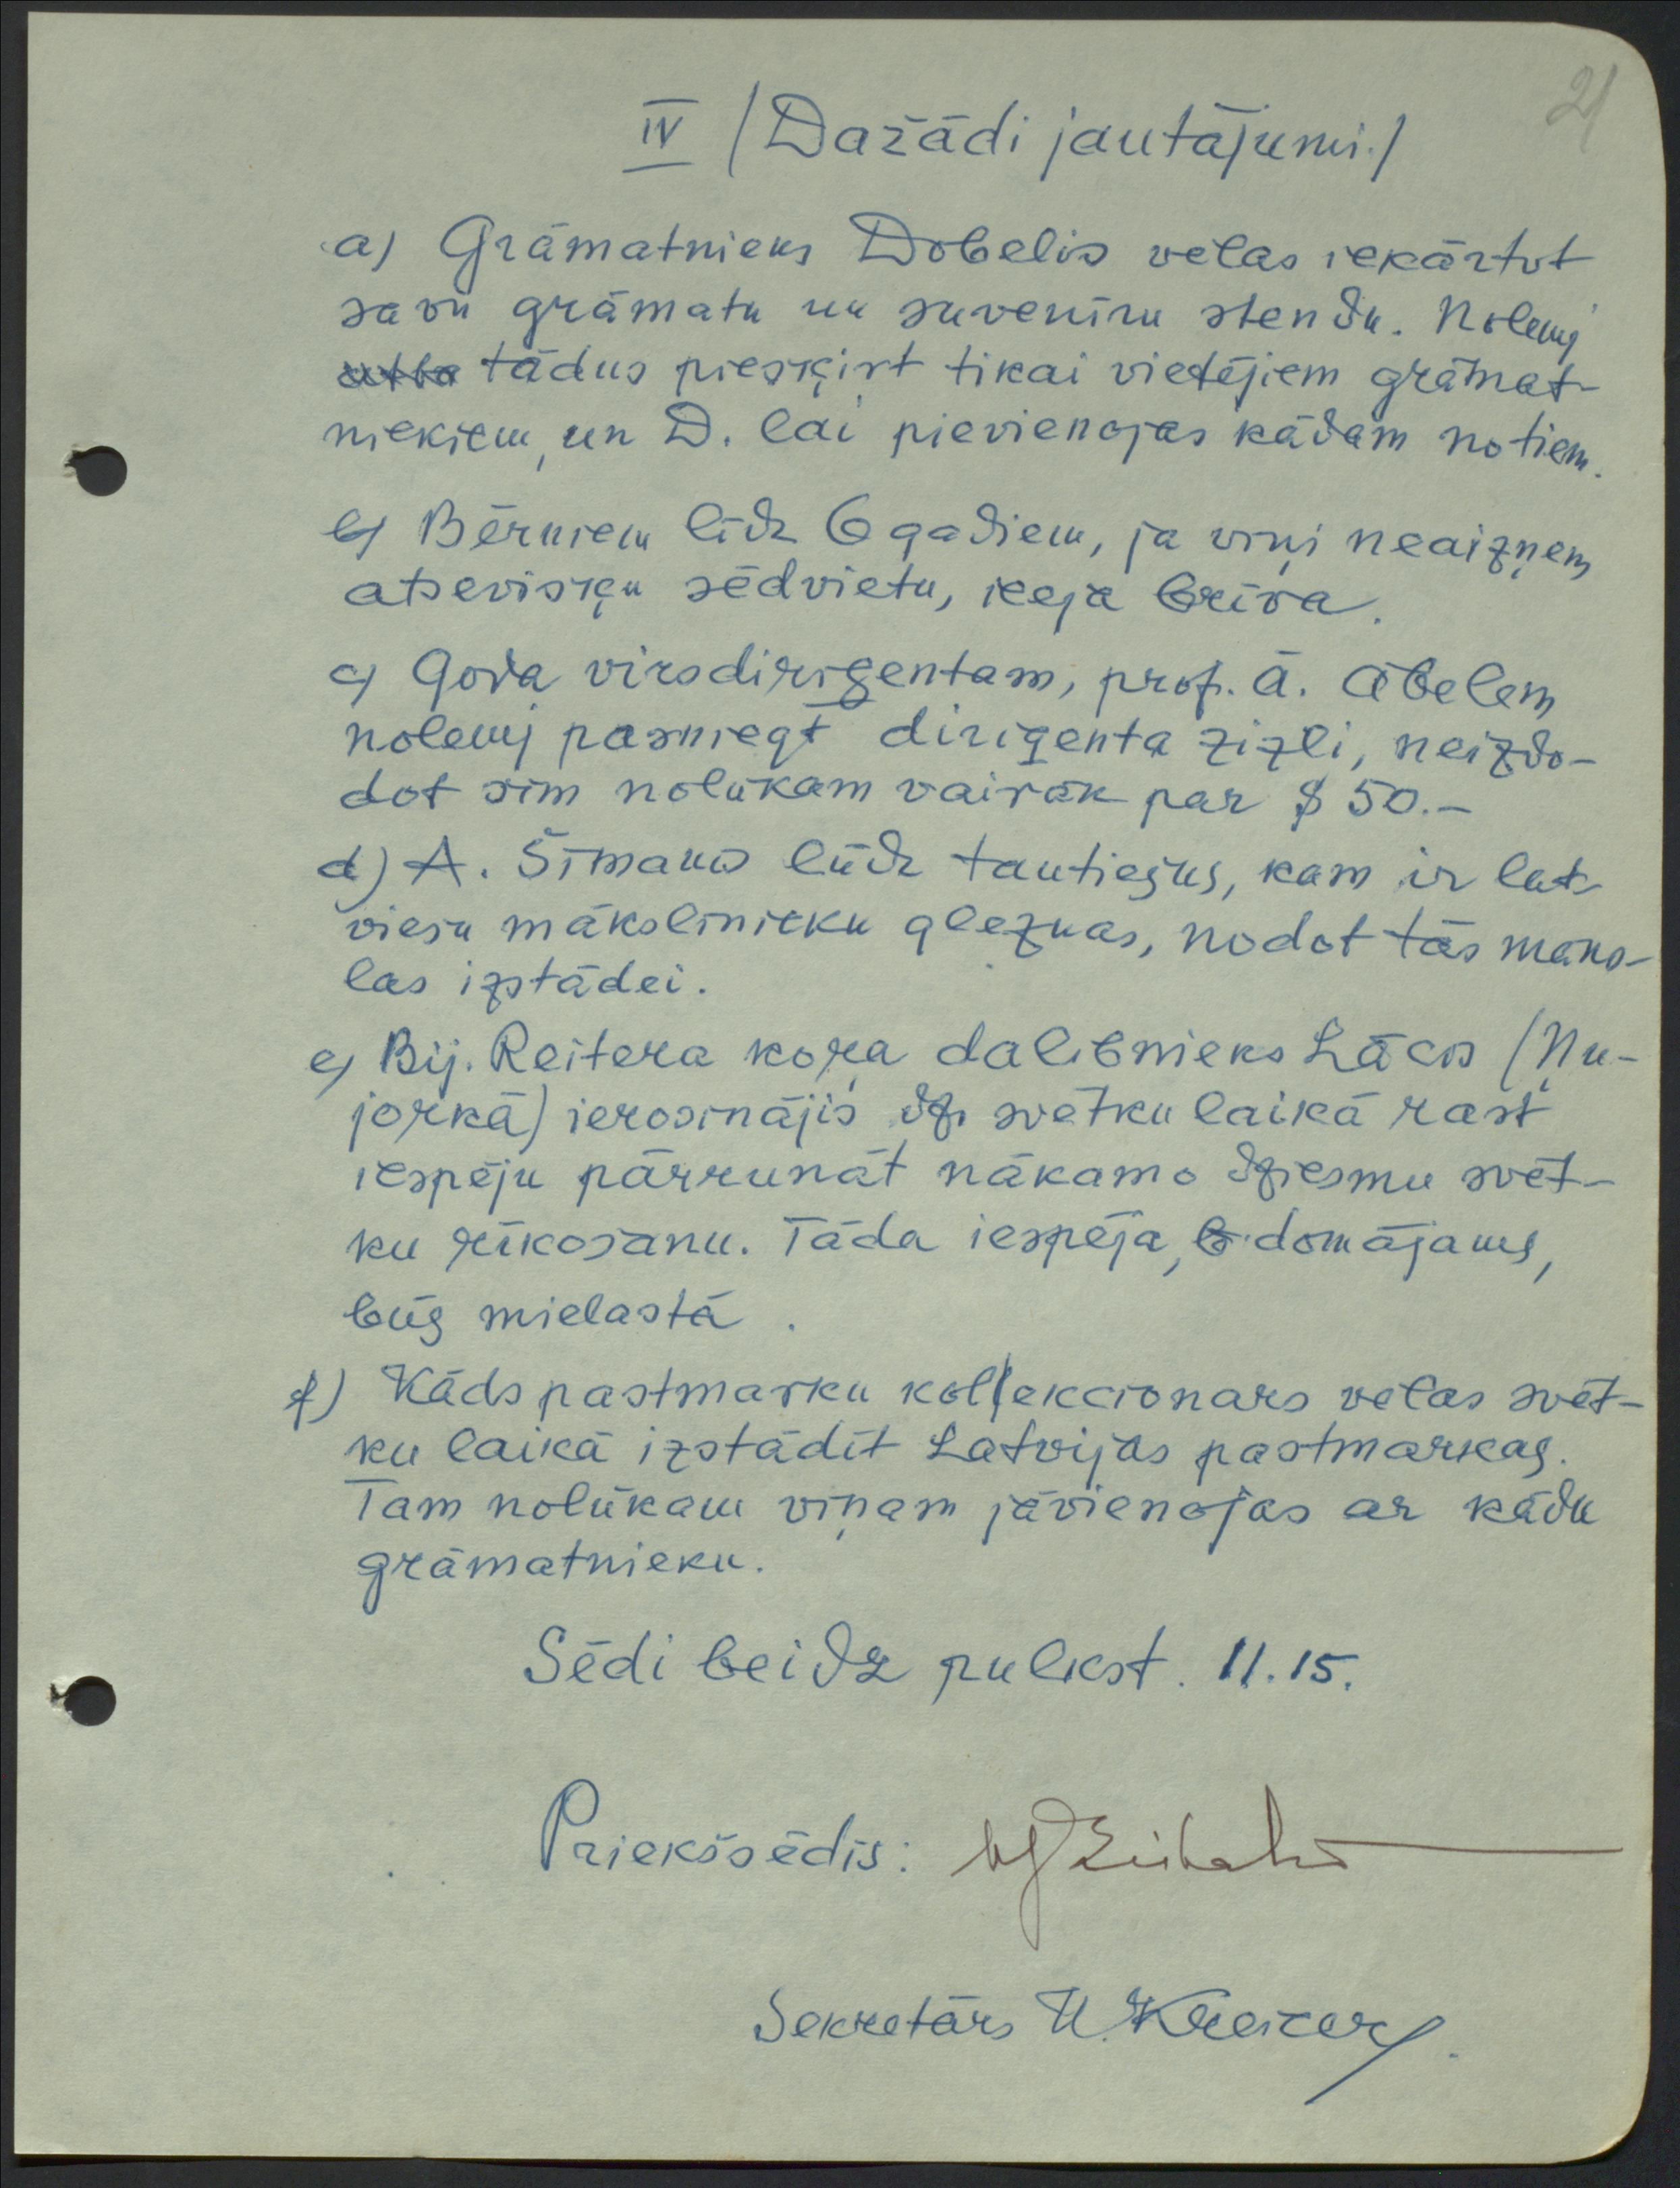 21
IV (Dažādi jautājumi.)
a) Grāmatnieks Dobelis vēlas iekārtot
savu grāmatu un suvenīru stendu. Nolemj
tādus piešķirt tikai vietējiem grāmat-
niekiem, un D. lai pievienojas kādam no tiem.
b) Bērniem līdz 6 gadiem, ja viņi neaizņem
atsevišķu sēdvietu, ieeja brīva.
c) Goda virsdiriģentam, prof. Ā. Ābelem
nolemj pasniegt diriģenta zizli, neizdo-
dot šim nolūkam vairāk par $ 50.-
d) A. Šīmanis lūdz tautiešus, kam ir lat-
viešu mākslinieku gleznas, nodot tās māks-
las izstādei.
e) Bij. Reitera koŗa dalībnieks Lācis (Ņu-
jorkā) ierosinājis dz. svētku laikā rast
iespēju pārrunāt nākamo dziesmu svēt-
ku rīkošanu. Tāda iespēja, domājams,
būs mielastā.
f) Kāds pastmarku kollekcionārs vēlas svēt-
ku laikā izstādīt Latvijas pastmarkas.
Tam nolūkam viņam jāvienojas ar kādu
grāmatnieku.
Sēdi beidz pulkst. 11.15.
Priekšsēdis:
Sekretārs